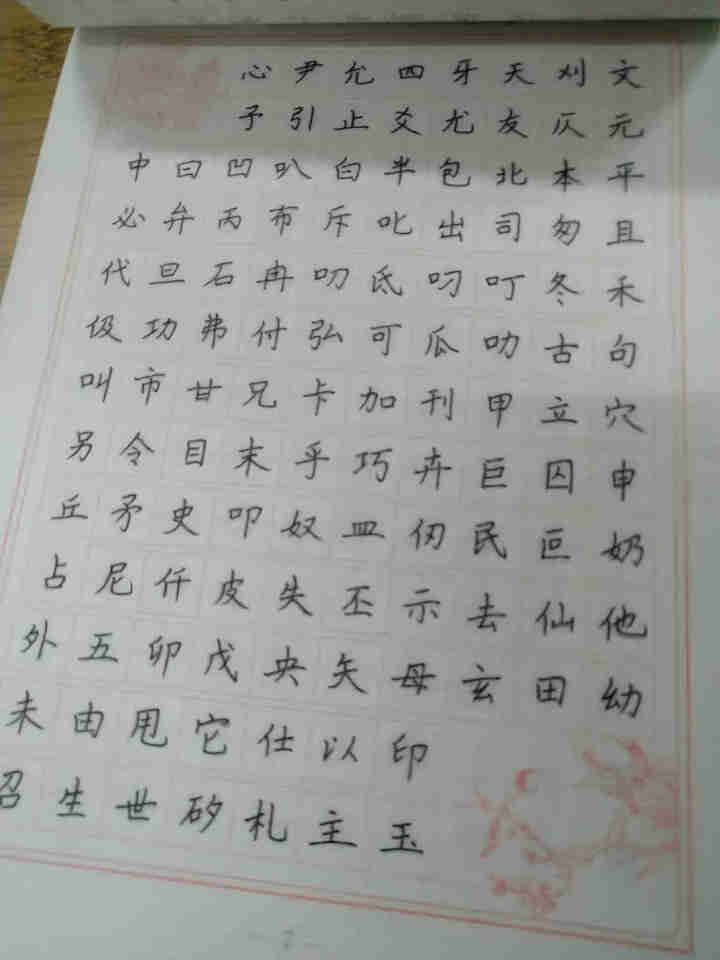 心尹允四牙天刈文
予引止爻尤友仄元
中曰凹叭白半包北本平
必弁丙布斥叱出司匆且
代旦石冉叨氐叼叮冬禾
伋功弗付弘可瓜叻古句
叫市甘兄卡加刊甲立穴
另令目末乎巧卉巨囚申
丘矛史叩奴皿仞民叵奶
占尼仟皮失丕示去仙他
外五卯戊央矢母玄田幼
未由甩它仕以印
召生世矽札主玉